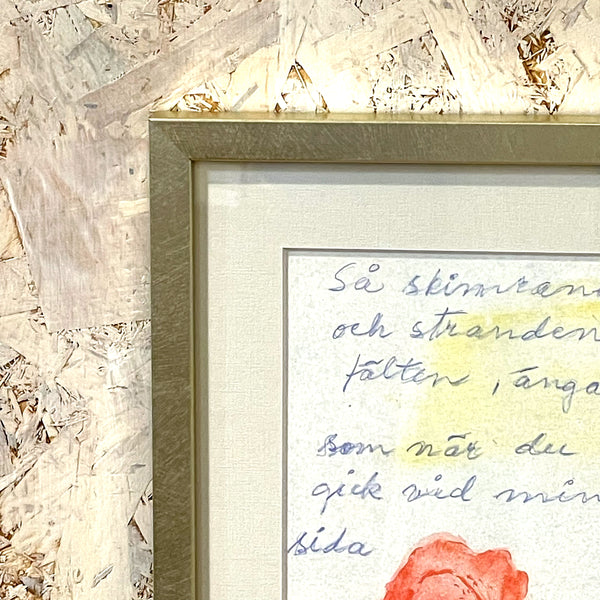 Så skimran
och stranden
fälten, änga
som när du
gick vid min
sida